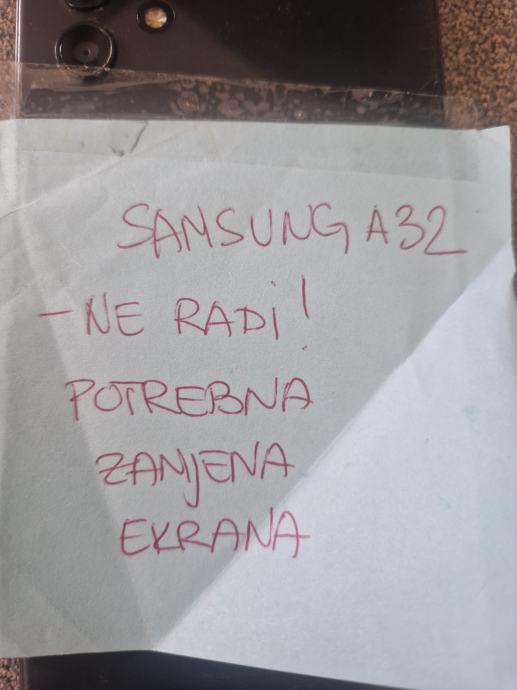 SAMSUNG A32
- NE RADI!
POTREBNA
ZAMJENA
EKRANA